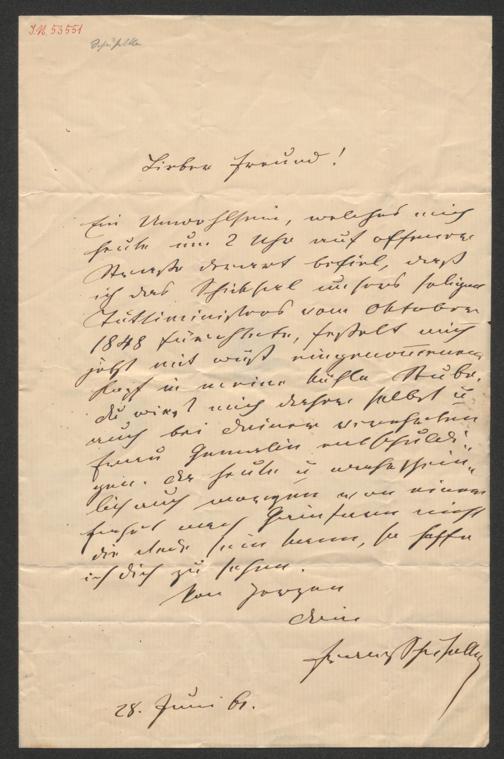 J.N. 53551
Schuselka
Lieber Freund!
Ein Unwohlsein, welches mich
heute um 2 Uhr auf offener
Strasse derart befiel, daß
ich das Schicksal unsers seligen
ministers vom Oktober
1848 fürchtete, fesselt mich
jetzt mit wüst eingenom̄enen
Kopf in meine kühle Stube.
Du wirst mich daher selbst u
auch bei Deiner verehrten
Frau Gemalin entschuldi-
gen. Da heute u wahrschein-
lich auch morgen von einer
Fahrt nach nicht
die Rede sein kann, so hoffe
ich Dich zu sehen.
Von Herzen
Dein
Franz Schuselka
28. Juni 61.